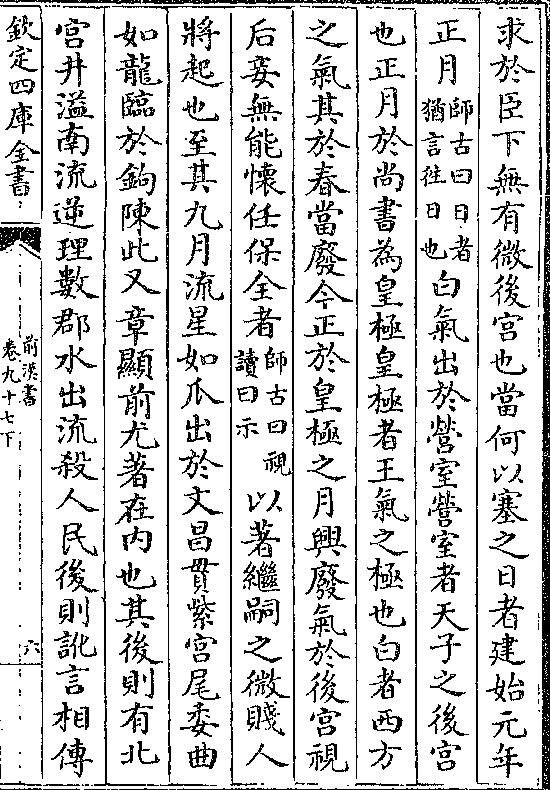 求於臣下無有微後宮也當何以塞之日者建始元年
正月師古曰日者猶言往日也白氣出於營室營室者天子之後宮
也正月於尚書為皇極皇極者王氣之極也白者西方
之氣其於春當廢今正於皇極之月興廢氣於後宮視
后妾無能懷任保全者師古曰視讀曰示以著繼嗣之微賤人
將起也至其九月流星如瓜出於文昌貫紫宮尾委曲
如龍臨於鉤陳此又章顯前尤著在内也其後則有北
宮井溢南流逆理數郡水出流殺人民後則訛言相傳
欽定四庫全書
前漢書
卷九十七下
六